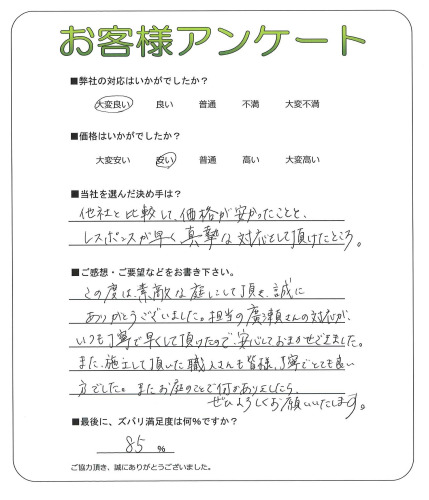 お客様アンケート
■弊社の対応はいかがでしたか?
大変良い 良い 普通 不満 大変不満
■価格はいかがでしたか?
大変安い 安い 普通 高い 大変高い
■当社を選んだ決め手は?
他社と比較して、価格が安かったことと、
レスポンスが早く、真摯な対応をして頂けたところ。
■ご感想・ご要望などをお書き下さい。
この度は、素敵な庭にして頂き、誠に
ありがとうございました。担当の廣瀬さんの対応が、
いつも丁寧で早くして頂けたので、安心しておまかせできました。
また、施工して頂いた職人さんも皆様、丁寧でとても良い
方でした。またお庭のことで何かありましたら、
ぜひよろしくお願いいたします。
■最後に、ズバリ満足度は何%ですか?
85 %
ご協力頂き、誠にありがとうございました。